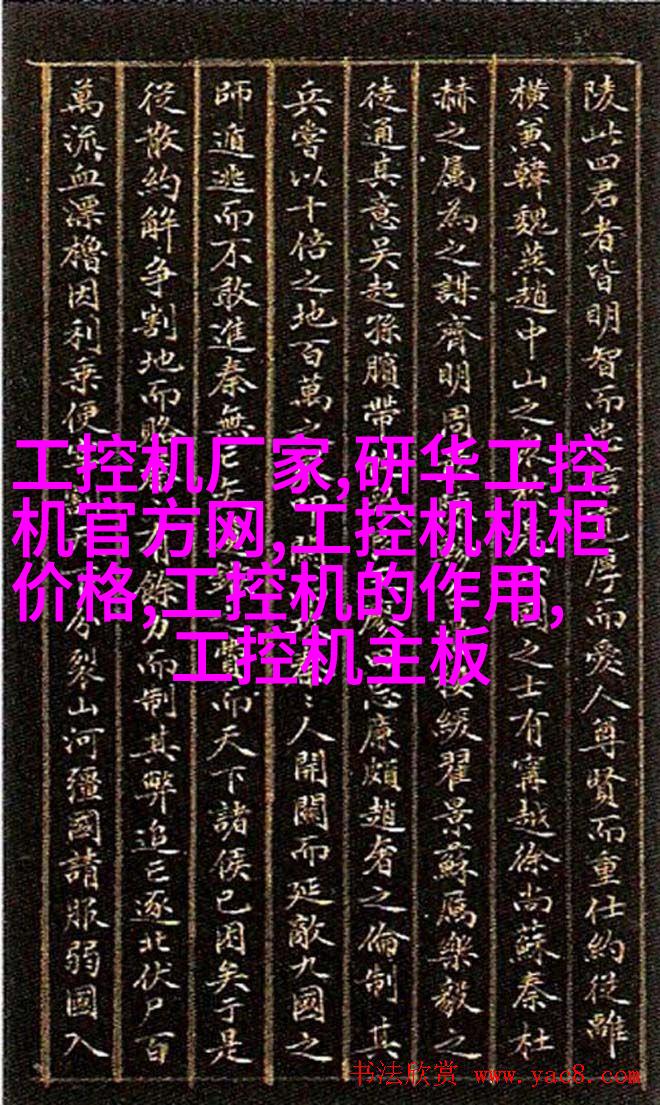 陵此四君者皆明智而忠厚而愛人尊賢而重仕約從離
橫兼韓魏燕趙中山之之士有甯越徐尚蘇秦杜
赫之属為之謀齊明周緩翟景蘇厲樂毅之
徒通其意吴起孫臏帶忌廉頗趙奢之倫制其
兵嘗以十倍之地百萬之人開關而延敵九國之
師遁逃而不敢進秦無亡矢費而天下諸侯已困矣于是
從散約解争割地而賂有餘力而制其弊追亡逐北伏尸百
萬流血漂櫓因利乘便分裂山河彊國請服弱國入
工控机厂家,研华工控
机官方网,工控机机柜
价格,工控机的作用,
工控机主板
书法欣赏 www.yac8.com